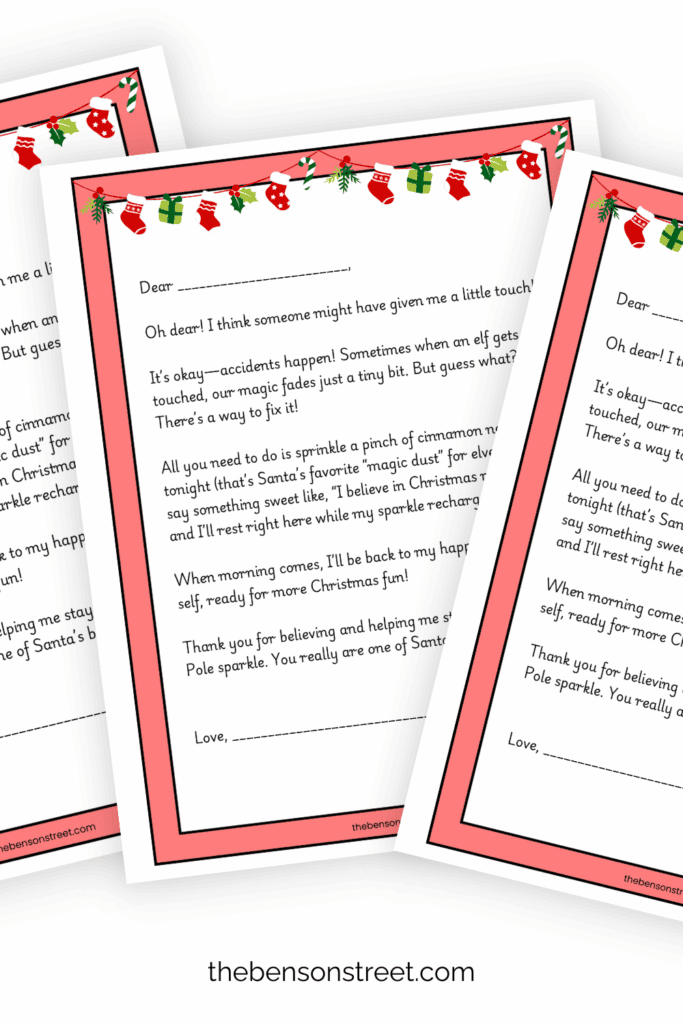 n me a li
when an
But gues
of cinnamo
ic dust" for
in Christma
arkle rechar
k to my happ
fun!
elping me stay
ne of Santa's b
hebensonstreet.com
Dear ____________________,
Oh dear! I think someone might have given me a little touch!
It's okay—accidents happen! Sometimes when an elf gets
touched, our magic fades just a tiny bit. But guess what?
There's a way to fix it!
All you need to do is sprinkle a pinch of cinnamon ne
tonight (that's Santa's favorite "magic dust" for elve
say something sweet like, "I believe in Christmas m
and I'll rest right here while my sparkle recharg
When morning comes, I'll be back to my happ
self, ready for more Christmas fun!
Thank you for believing and helping me st
Pole sparkle. You really are one of Santa
Love, ____________________
thebenson
Dear ____
Oh dear! I th
It's okay—acc
touched, our m
There's a way to
All you need to do
tonight (that's San
say something swee
and I'll rest right he
When morning comes
self, ready for more Ch
Thank you for believing
Pole sparkle. You really a
Love, ____________________
thebensonstre
thebensonstreet.com